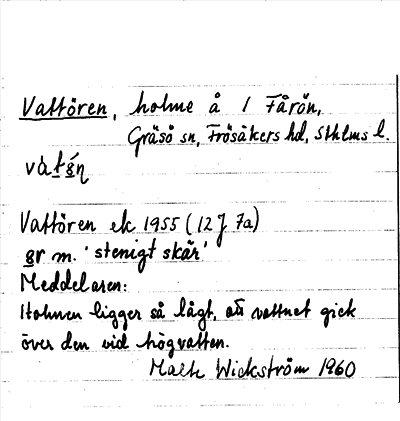 Vattören, holme å / Fårön,
Gräsö sn, Frösåkers hd, Sthlms l.
Vattören ek 1955 (12J 7a)
gr m. 'stenigt skär'
Meddelaren:
Holmen ligger så lågt, att vattnet gick
över den vid högvatten.
Wickström 1960